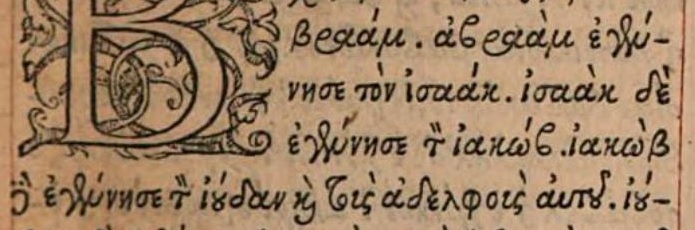 Β
βραάμ. ἀβραὰμ ἐγέν-
νησε τὸν ἰσαάκ. ἰσαὰκ δὲ
ἐγέννησε τὸν ἰακώβ. ἰακὼβ
δὲ ἐγέννησε τὸν ἰούδαν καὶ τοὺς ἀδελφοὺς αὐτοῦ. ἰού-